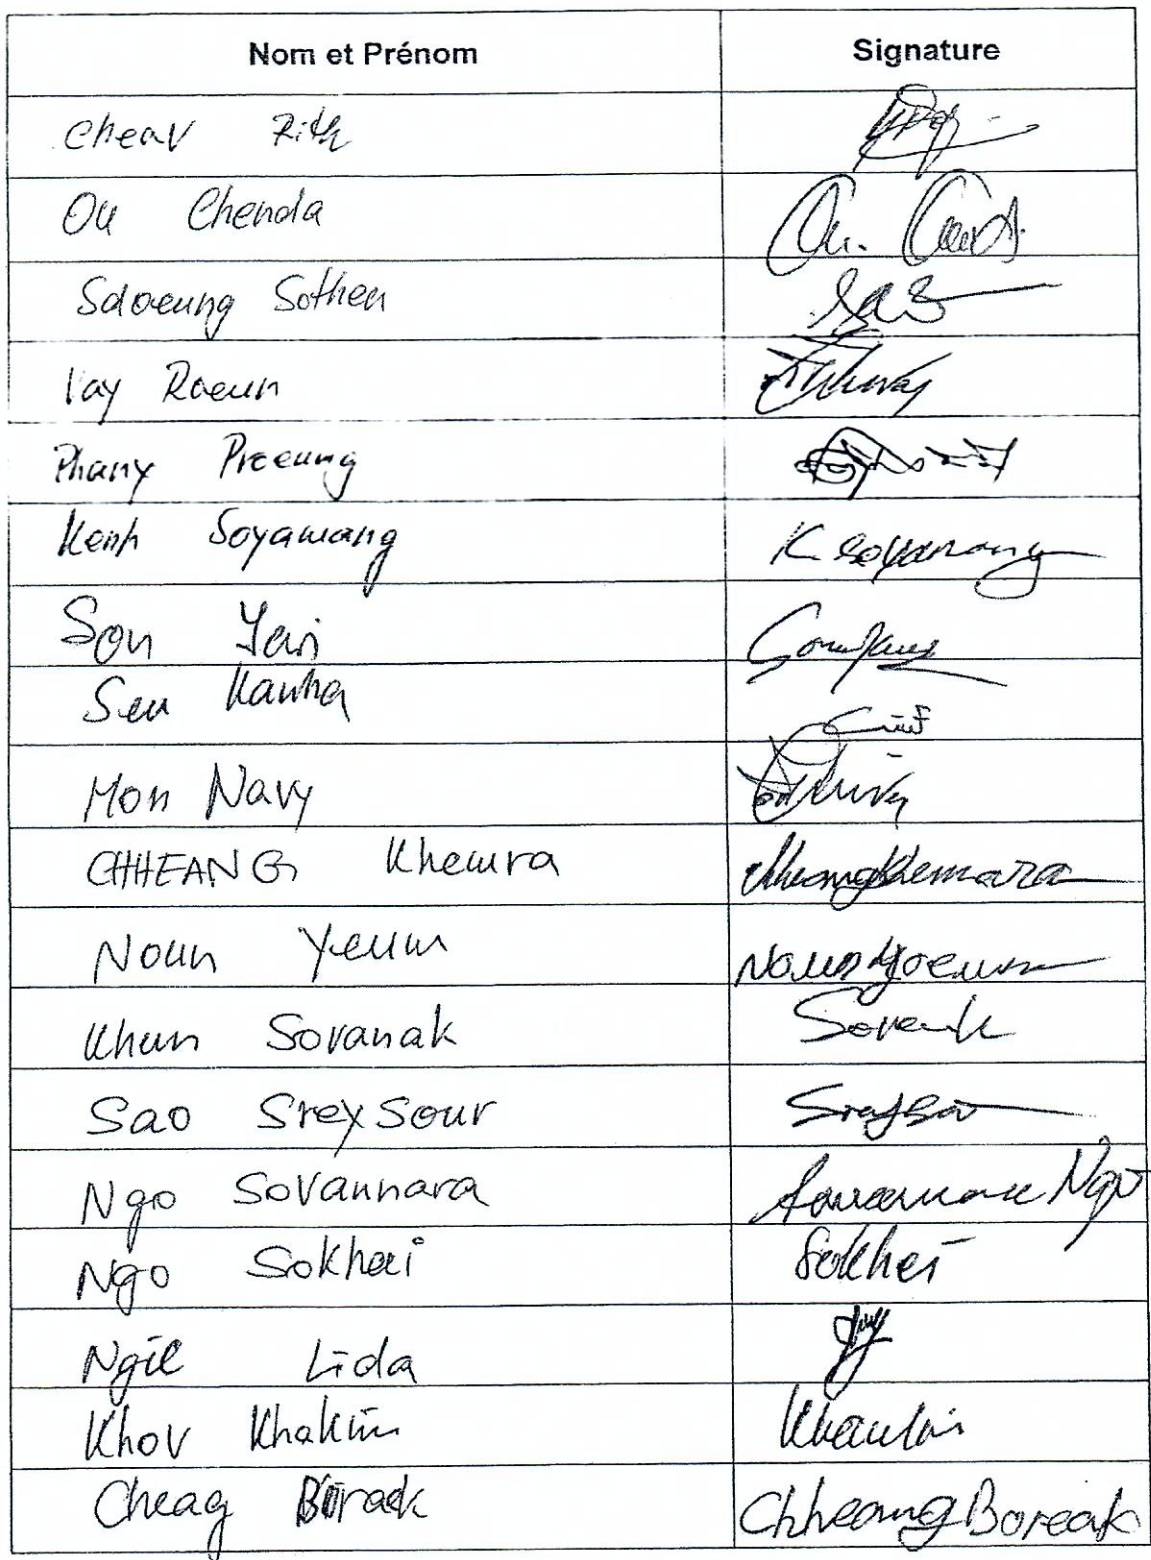 Nom et Prénom Signature
Cheav Rith
Ou Chenda Ou.
Sdoeung Sothen
Vay Roeun
Phany Proeung
Kenh Soyamang K soyanang
Son Yan
Sen Kanha
Mon Navy
CHHEANG Khemra Chheang Khemara
Noun Yeum Noun Yoeum
Khun Sovanak
Sao Srey Sour
Ngo Sovannara Ngo
Ngo Sokhai Sokhei
Ngil Lida
Khov Khakim
Cheag Borack Chheang Boreak